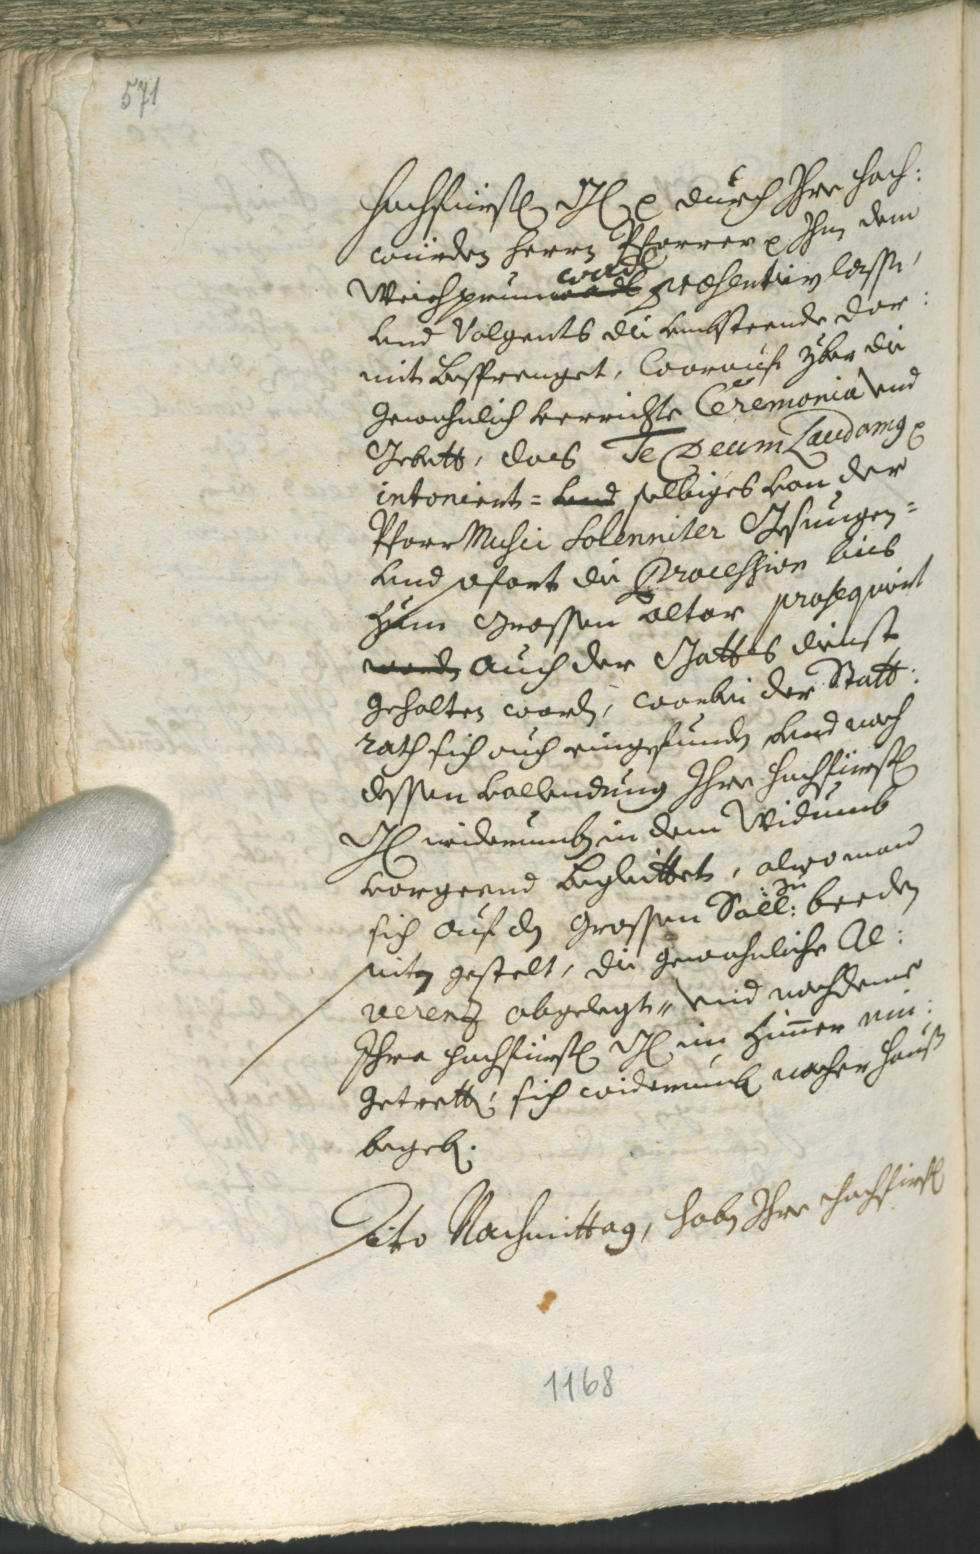 571
hochfürstl Gl p durch Ihre Hoch:
würden herrn Pfarrer p Ihm dem
Weichprun wadl præsentiern lassn,
vnd Volgents die vmbsteende dar:
mit bespränget, worauf yber die
gewohnlich verrichte Ceremonia vnd
Gebett, das Te Deum Laudamus p
intoniert = vnd selbiges von der
Pfarr Musici Solenniter Gesungen =
vnd sofort die Procession bis
zum Grossen altar prosequiert
worden auch der Gotts dienst
gehalten worden, worbei der Statt:
rath sich auch eingefunden vnd nach
dessen vollendung Ihre hochfürstl
Gl widerumb in dem Widumb
vorgeend begleittet, alwo man
sich auf den Grossen Sall: zu beeden
seiten gestelt, die gewohnliche Re:
verenz abgelegt, vnd nachdeme
Ihre hochfürstl Gl im Zimmer ein:
getretten, sich widerumb nacher Hauß
begeben.
Dito Nachmittag, haben Ihre hochfürstl
1168